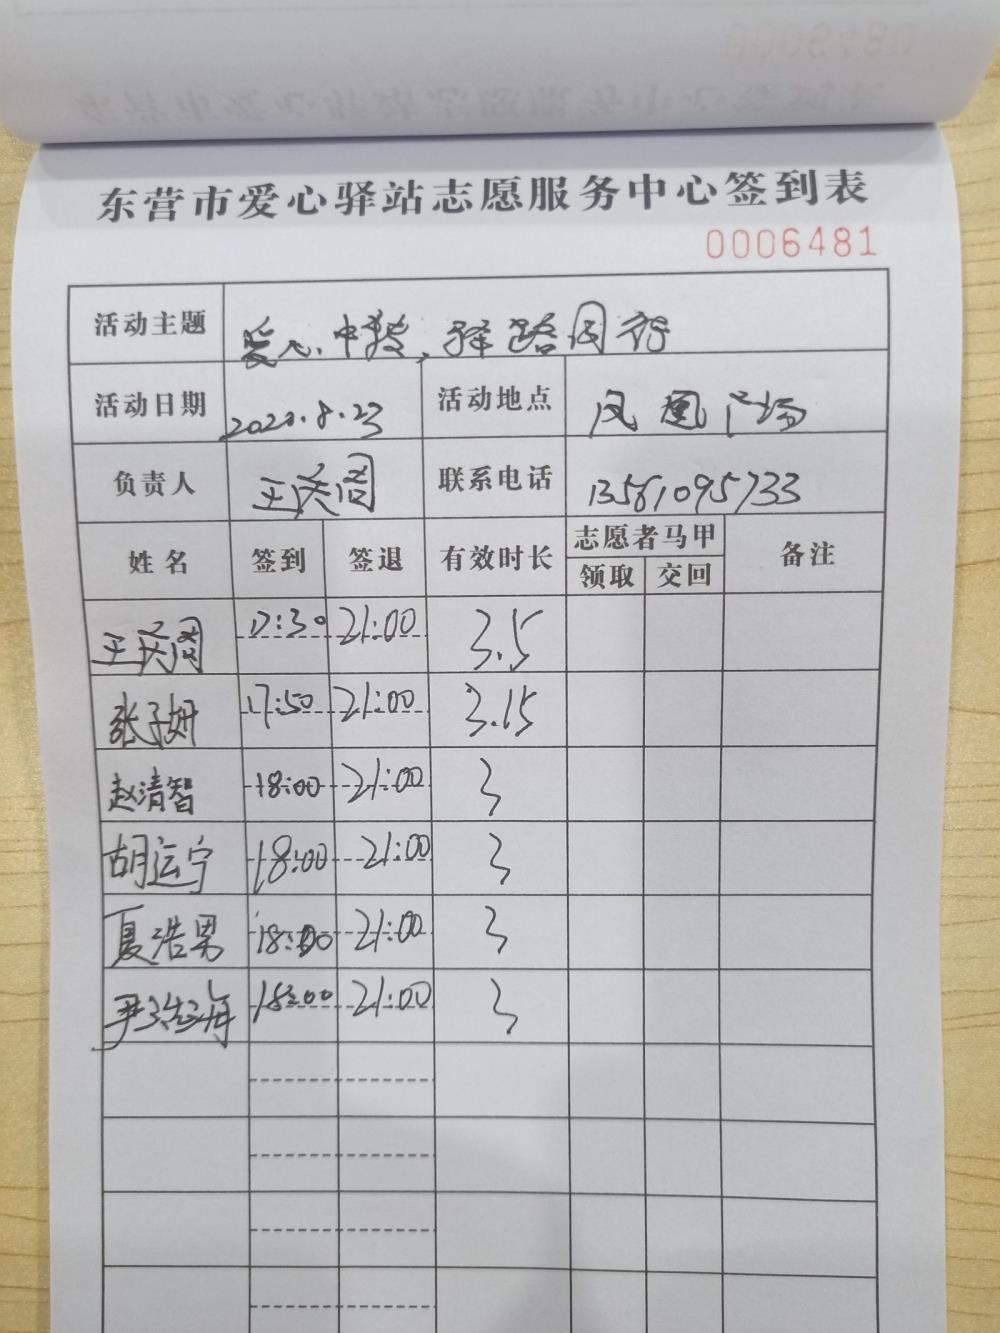 东营市爱心驿站志愿服务中心签到表
0006481
活动主题 爱心中转,驿路同行
活动日期 2020.8.23 活动地点 凤凰广场
负责人 王庆阁 联系电话 13561095733
姓名 签到 签退 有效时长 志愿者马甲 备注
领取 交回
王庆阁 17:30 21:00 3.5
张子妍 17:50 21:00 3.15
赵清智 18:00 21:00 3
胡运宁 18:00 21:00 3
夏浩男 18:00 21:00 3
尹浩海 18:00 21:00 3